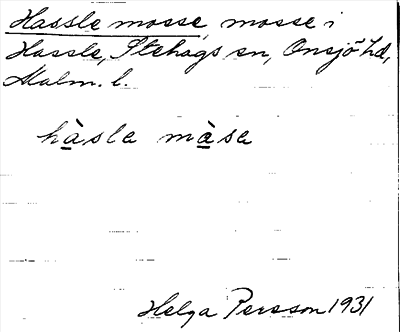 Hassle mosse, mosse i
Hassle, Stehags sn, Onsjö hd,
Malm. l.
hàsle màse
Helga Persson 1931